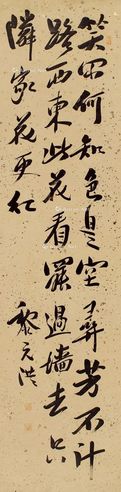 笑凡何知色是空尋芳不計
路西東此花看罷過墻去只
隣家花更紅
黎元洪